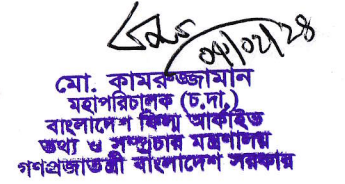 ০৫/০২/২৪
মো. কামরুজ্জামান
মহাপরিচালক (চ.দা.)
বাংলাদেশ ফিল্ম আর্কাইভ
তথ্য ও সম্প্রচার মন্ত্রণালয়
গণপ্রজাতন্ত্রী বাংলাদেশ সরকার